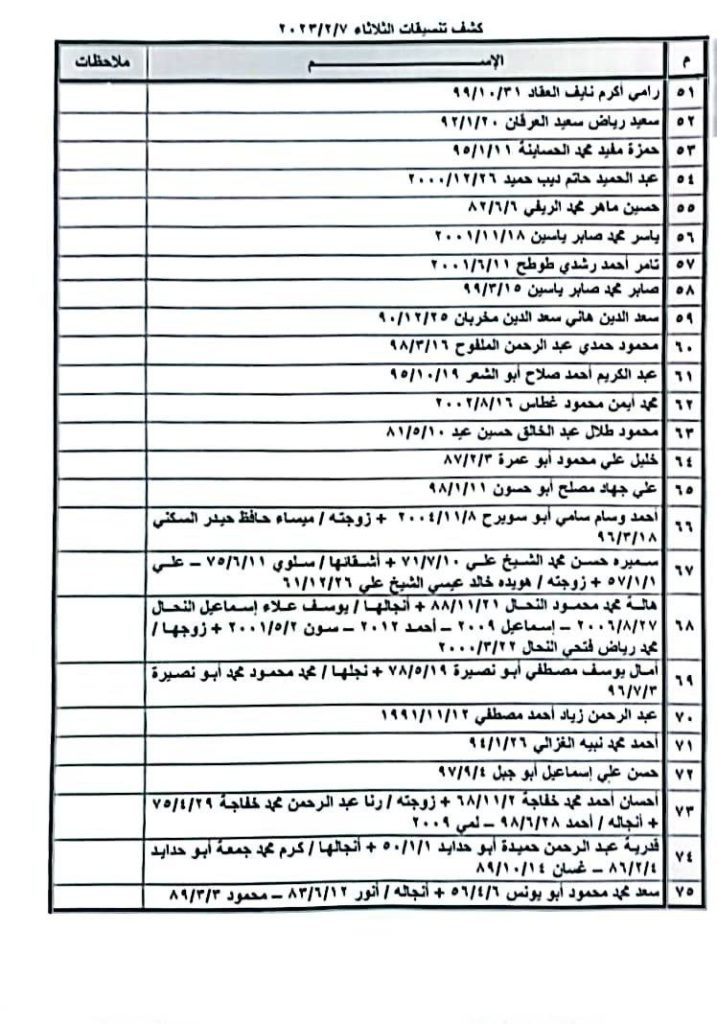 كشف تنسيقات الثلاثاء ٢٠٢٣/٢/٧
م الإســــــــم ملاحظات
٥١ رامي أكرم نايف العقاد ٩٩/١٠/٣١
٥٢ سعيد رياض سعيد العرقان ٩٢/١/٢٠
٥٣ حمزة مفيد محمد الحساينة ٩٥/١/١١
٥٤ عبد الحميد حاتم ديب حميد ٢٠٠٠/١٢/٢٦
٥٥ حسين ماهر محمد الريفي ٨٢/٦/٦
٥٦ ياسر محمد صابر ياسين ٢٠٠١/١١/١٨
٥٧ تامر أحمد رشدي طوطح ٢٠٠١/٦/١١
٥٨ صابر محمد صابر ياسين ٩٩/٣/١٥
٥٩ سعد الدين هاني سعد الدين مخربان ٩٠/١٢/٢٥
٦٠ محمود حمدي عبد الرحمن الملفوح ٩٨/٣/١٦
٦١ عبد الكريم أحمد صلاح أبو الشعر ٩٥/١٠/١٩
٦٢ محمد أيمن محمود غطاس ٢٠٠٢/٨/١٦
٦٣ محمود طلال عبد الخالق حسين عيد ٨١/٥/١٠
٦٤ خليل علي محمود أبو عمرة ٨٧/٢/٣
٦٥ علي جهاد مصلح أبو حسون ٩٨/١/١١
٦٦ أحمد وسام سامي أبو سويرح ٢٠٠٤/١١/٨ + زوجته / ميساء حافظ حيدر السكني
٩٦/٣/١٨
٦٧ سميره حسن محمد الشيخ علي ٧١/٧/١٠ + أشقائها / سلوي ٧٥/٦/١١ – علي
٥٧/١/١ + زوجته / هويده خالد عيسي الشيخ علي ٦١/١٢/٢٦
٦٨ هالة محمد محمود النحال ٨٨/١١/٢١ + أنجالها / يوسف علاء إسماعيل النحال
٢٠٠٦/٨/٢٧ – إسماعيل ٢٠٠٩ – أحمد ٢٠١٢ – سون ٢٠٠١/٥/٢ + زوجها /
محمد رياض فتحي النحال ٢٠٠٠/٣/٢٢
٦٩ أمال يوسف مصطفي أبو نصيرة ٧٨/٥/١٩ + نجلها / محمد محمود محمد أبو نصيرة
٩٦/٧/٣
٧٠ عبد الرحمن زياد أحمد مصطفي ١٩٩١/١١/١٢
٧١ أحمد محمد نبيه الغزالي ٩٤/١/٢٦
٧٢ حسن علي إسماعيل أبو جبل ٩٧/٩/٤
٧٣ أحسان أحمد محمد خفاجة ٦٨/١١/٢ + زوجته / رنا عبد الرحمن محمد خفاجة ٧٥/٤/٢٩
+ أنجاله / أحمد ٩٨/٦/٢٨ – لمي ٢٠٠٩
٧٤ قدرية عبد الرحمن حميدة أبو حدايد ٥٠/١/١ + أنجالها / كرم محمد جمعة أبو حدايد
٨٦/٢/٤ – غسان ٨٩/١٠/١٤
٧٥ سعد محمد محمود أبو يونس ٥٦/٤/٦ + أنجاله / أنور ٨٣/٦/١٢ – محمود ٨٩/٣/٣